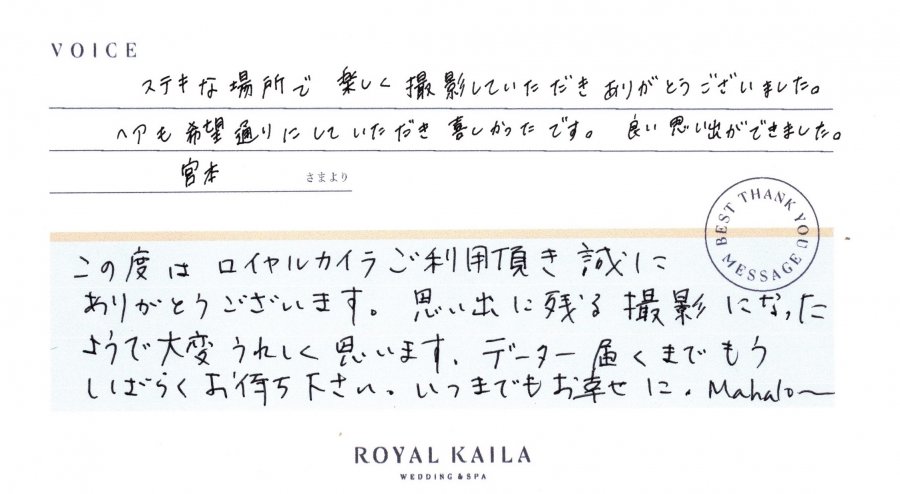 VOICE
ステキな場所で 楽しく 撮影していただき ありがとうございました。
ヘアも希望通りにしていただき 喜しかったです。 良い思い出ができました。
宮本 さまより
BEST THANK YOU MESSAGE
この度は ロイヤルカイラご利用頂き誠に
ありがとうございます。思い出に残る撮影になった
ようで大変うれしく思います。データー届くまでもう
しばらくお待ち下さい。いつまでもお幸せに。Mahalo〜
ROYAL KAILA
WEDDING & SPA